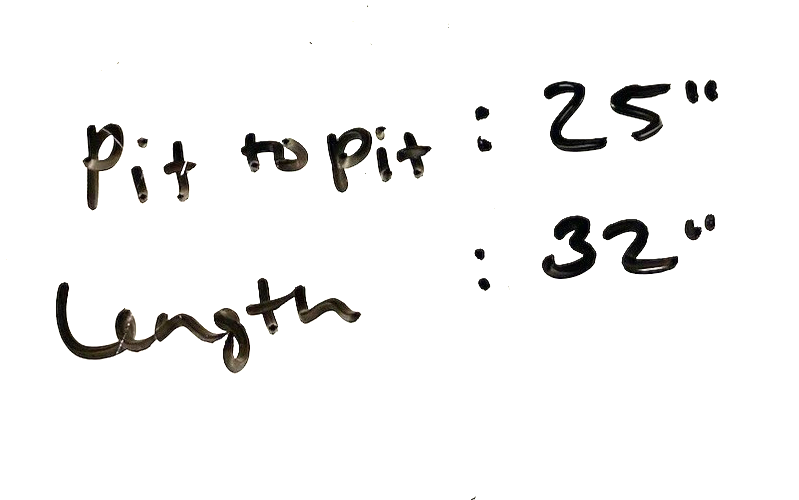 Pit to pit : 25"
Length : 32"